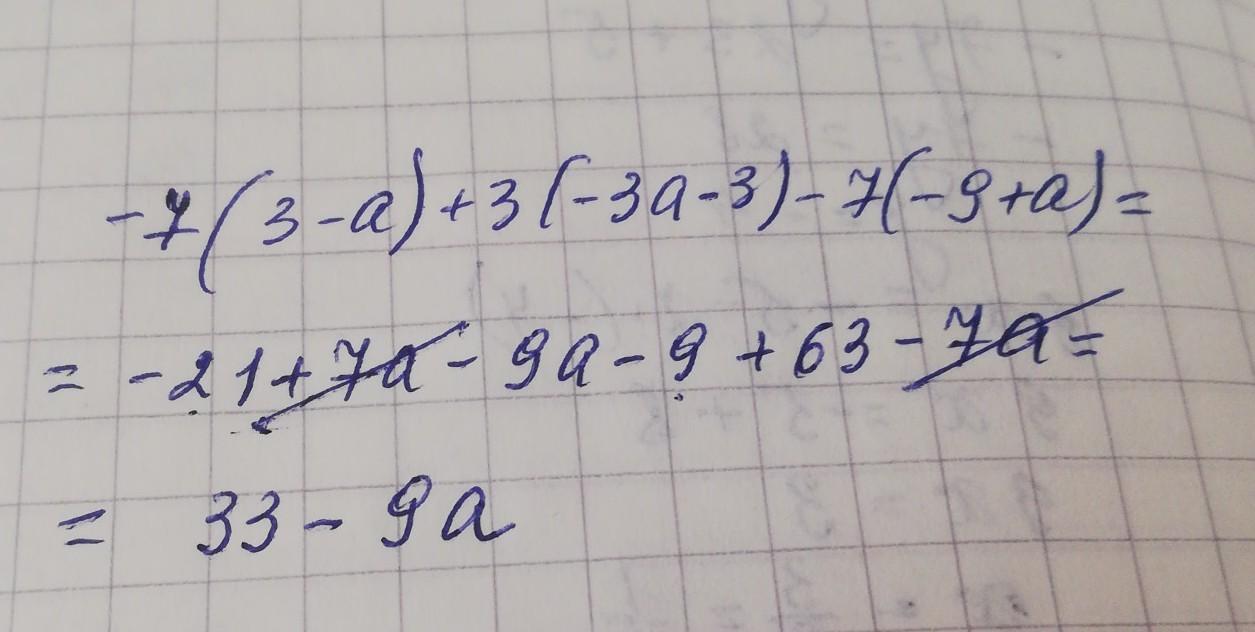 -7(3-a)+3(-3a-3)-7(-9+a)=
=-21+7a-9a-9+63-7a=
= 33-9a